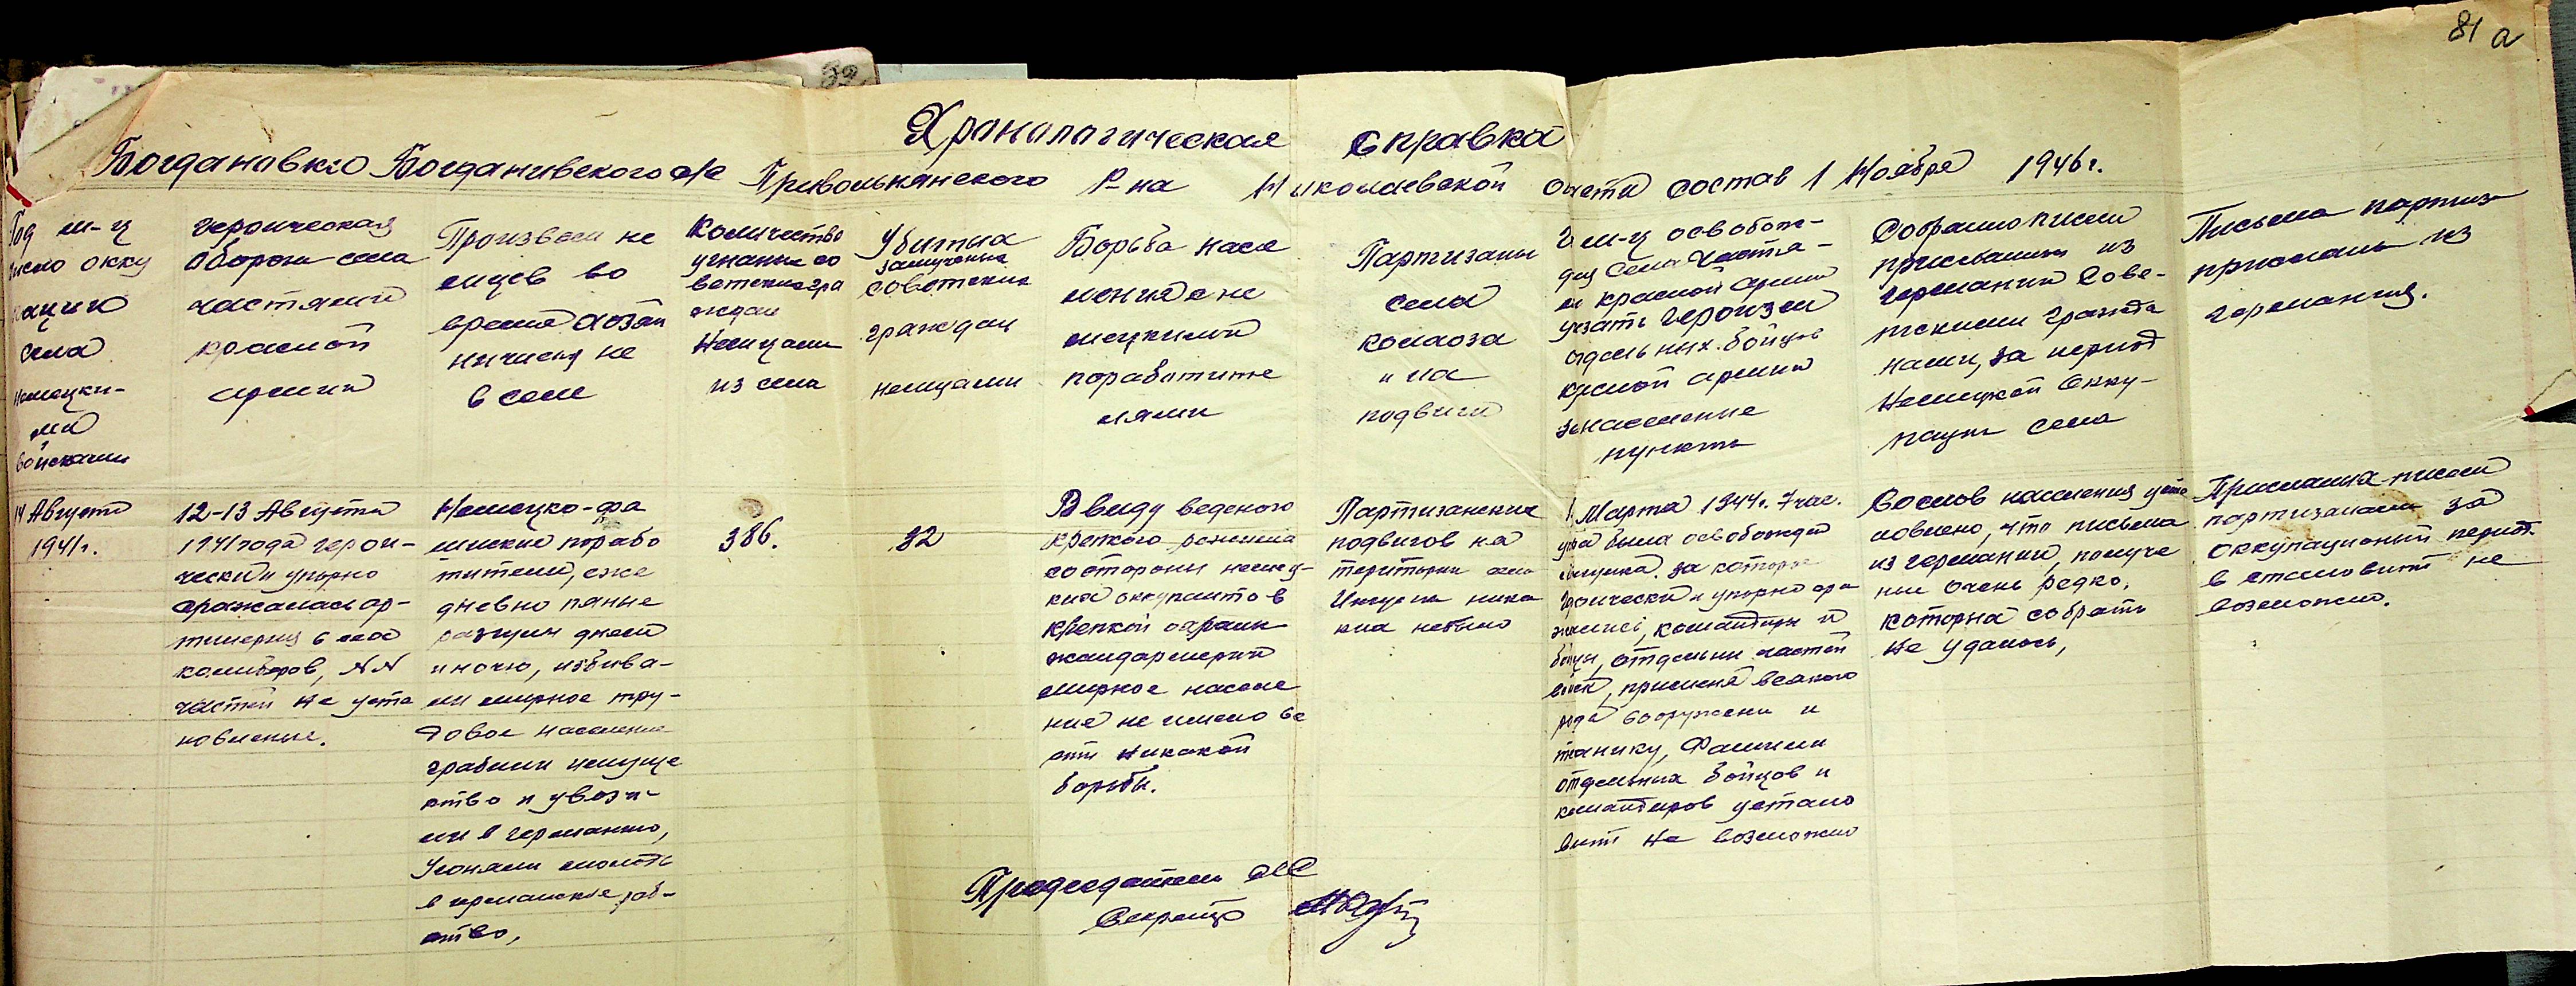 81 а
Хронологическая справка
Богдановко Богдановского с/с Привольнянского Р-на Николаевской области состав 1 Ноября 1946 г.
Год м-ц
число окку
пации
села
немецки-
ми
войсками
героическая
оборона села
частями
красной
армии
Произвол не
мцев во
время
в селе
Количество
угнаных со
ветских гра
ждан
Немцами
из села
Убитых
замученых
советских
граждан
немцами
Борьба насе
ления с не
мецкими
поработите
лями
Партизаны
села
колхоза
и их
подвиги
Г м-ц освобож-
села частя-
ми красной армии
указать героизм
отдельных бойцов
красной армии
за населенные
пункты
Собрано писем
присланных из
германии Сове-
тскими гражда
нами, за период
Немецкой Окку-
пации села
Письма партиза
присланы из
германия.
14 Августа
1941 г.
12-13 Августа
1941 года герои-
чески и упорно
сражалась ар-
тилерия всех
калибров, NN
частей не уста
новленые.
Немецко-фа
шиские порабо
тители, еже
дневно пяные
днем
и ночю, избива-
ли мирное тру-
довое население
грабили имуще
ство и увози-
ли в германию,
Угоняли молодь
в германское раб-
ство,
386.
32
Ввиду веденого
крепкого режима
со стороны немец-
ких оккупантов
крепкой охраны
жандармерии
мирное населе
ние не имело ве
сти никакой
борьби.
Партизанских
подвигов на
територии села
Ингула ника
ких небыло
Марта 1944 г. 7 час.
утра была освобожден
за которое
героически и упорно сра
жались, командиры и
бойцы, отдельных частей
войск, применя всякого
рода вооружени и
технику, Фамилии
отдельных бойцов и
командиров устано
вить не возможно
Со слов населения уста
новлено, что письма
из германии, получе
ные очень редко,
которых собрать
не удалось,
Присланых писем
партизанами за
оккупационый период.
в становить не
возможно.
Председатель с/с
Секретар